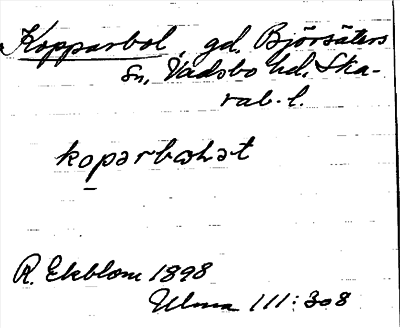 Kopparbol, gd. Björsäters
sn, Vadsbo hd. Ska-
rab. l.
R. Ekblom 1898
Ulma 111:308